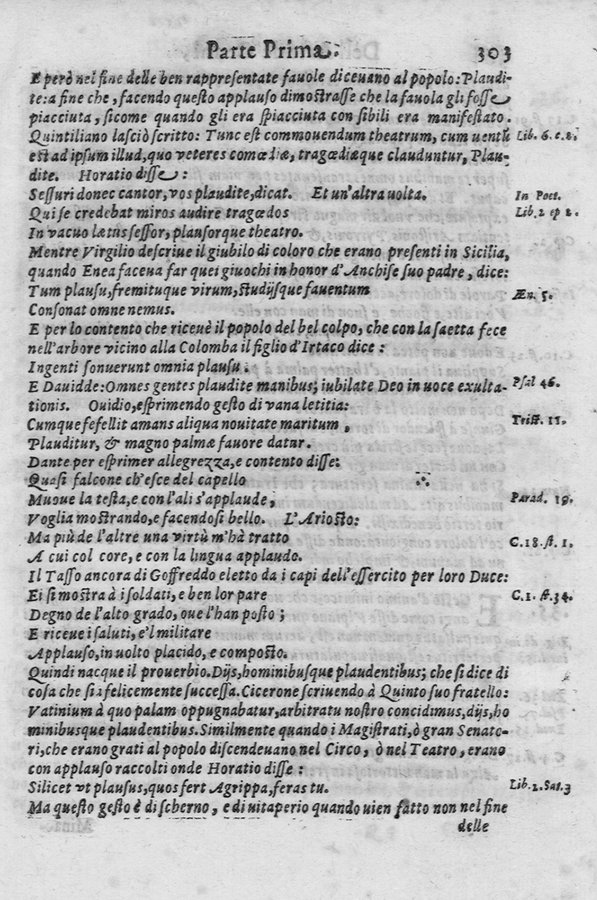 Parte Prima. 303
E però nel fine delle ben rappresentate fauole diceuano al popolo: Plaudi-
te: a fine che, facendo questo applauso dimostrasse che la fauola gli fosse
piacciuta, sicome quando gli era spiacciuta con sibili era manifestato.
Quintiliano lasciò scritto: Tunc est commouendum theatrum, cum uentũ Lib. 6. c. 8.
est ad ipsum illud, quo veteres comœdiæ, tragœdiæque clauduntur, Plau-
dite. Horatio disse:
Sessuri donec cantor, vos plaudite, dicat. Et un'altra uolta. In Poet.
Qui se credebat miros audire tragœdos Lib. 2 ep 2.
In vacuo lætus sessor, plausorque theatro.
Mentre Virgilio descriue il giubilo di coloro che erano presenti in Sicilia,
quando Enea faceua far quei giuochi in honor d'Anchise suo padre, dice:
Tum plausu, fremituque virum, studijsque fauentum Æn. 5.
Consonat omne nemus.
E per lo contento che riceuè il popolo del bel colpo, che con la saetta fece
nell'arbore vicino alla Colomba il figlio d'Irtaco dice:
Ingenti sonuerunt omnia plausu.
E Dauidde: Omnes gentes plaudite manibus; iubilate Deo in uoce exulta- Psal 46.
tionis. Ouidio, esprimendo gesto di vana letitia:
Cumque fefellit amans aliqua nouitate maritum, Trist. 11.
Plauditur, & magno palma fauore datur.
Dante per esprimer allegrezza, e contento disse:
Quasi falcone ch'esce del capello
Muoue la testa, e con l'ali s'applaude, Parad. 19.
Voglia mostrando, e facendosi bello. L'Ariosto:
Ma più de l'altre una virtù m'hà tratto C. 18. st. 1.
A cui col core, e con la lingua applaudo.
Il Tasso ancora di Goffreddo eletto da i capi dell'essercito per loro Duce:
Ei si mostra à i soldati, e ben lor pare C. 1. st. 34.
Degno de l'alto grado, oue l'han posto;
E riceue i saluti, e'l militare
Applauso, in uolto placido, e composto.
Quindi nacque il prouerbio. Dijs, hominibusque plaudentibus; che si dice di
cosa che sia felicemente successa. Cicerone scriuendo à Quinto suo fratello:
Vatinium à quo palam oppugnabatur, arbitratu nostro concidimus, dijs, ho
minibusque plaudentibus. Similmente quando i Magistrati, ò gran Senato-
ri, che erano grati al popolo discendeuano nel Circo, ò nel Teatro, erano
con applauso raccolti onde Horatio disse:
Silicet vt plausus, quos fert Agrippa, feras tu. Lib. 2. Sat. 3
Ma questo gesto è di scherno, e di uitaperio quando uien fatto non nel fine
delle